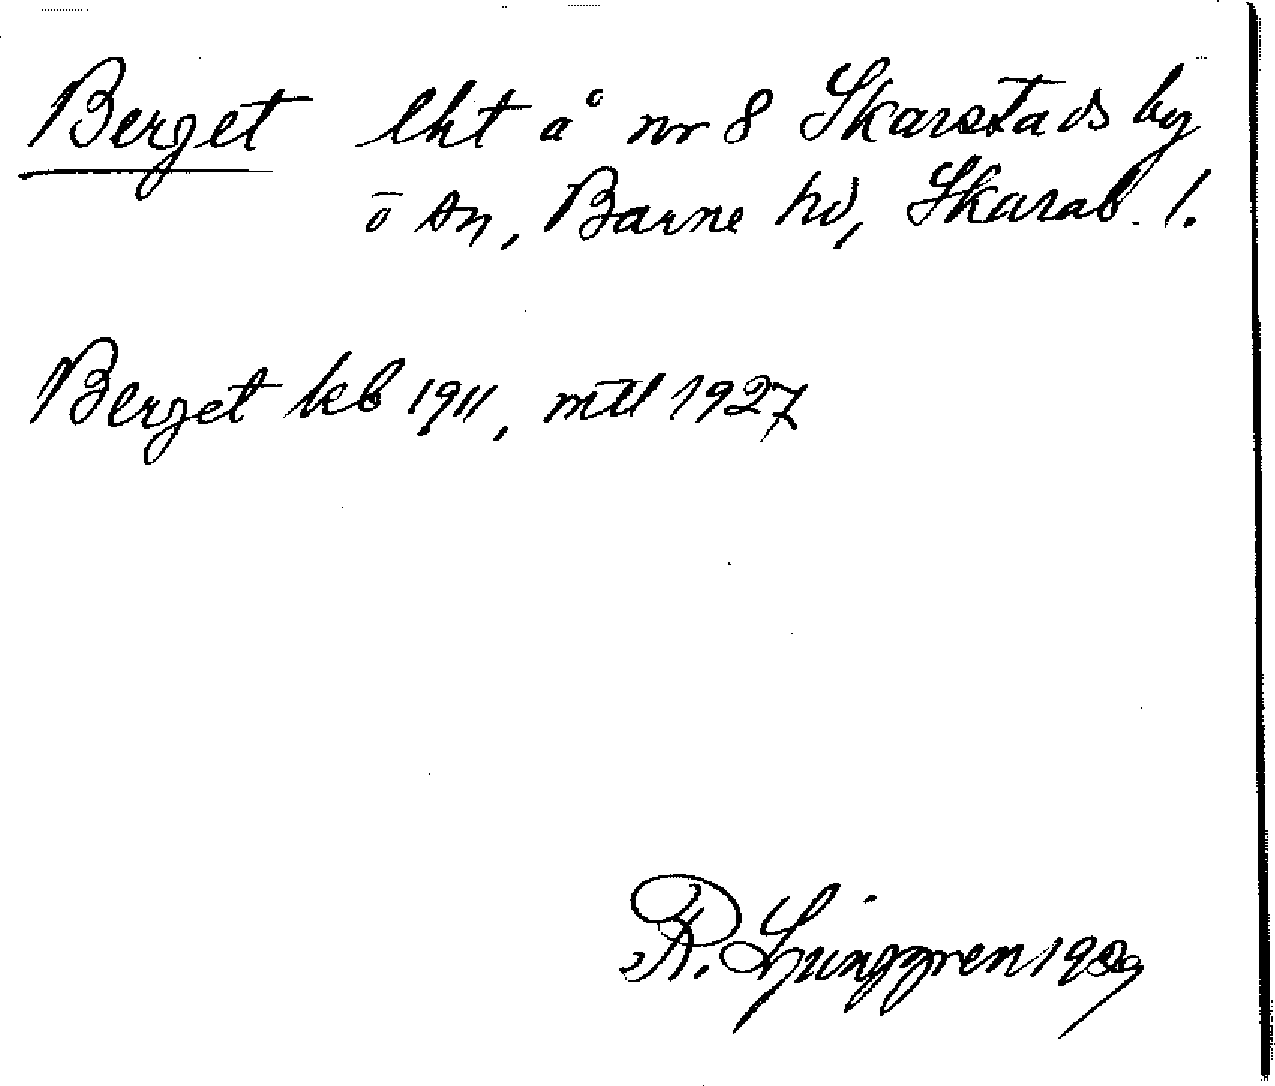 Berget lht å nr 8 Skarstads by
o sn, Barne hd, Skarab. l.
Berget kb 1911, mtl 1927
R. Ljunggren 1929